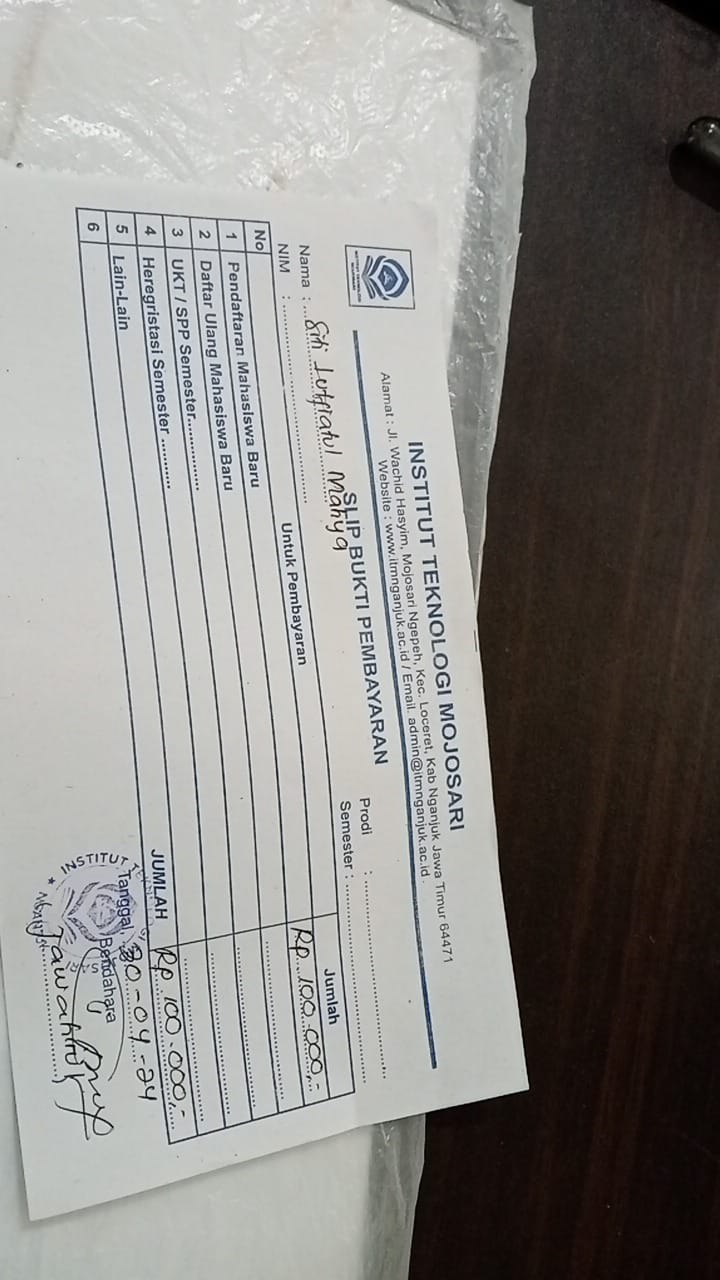 INSTITUT TEKNOLOGI MOJOSARI
Alamat : Jl. Wachid Hasyim, Mojosari Ngepeh, Kec. Loceret, Kab Nganjuk Jawa Timur 64471
Website : www.itmnganjuk.ac.id / Email. admin@itmnganjuk.ac.id
INSTITUT TEKNOLOGI
MOJOSARI
SLIP BUKTI PEMBAYARAN
Nama : Siti Lutfiatul Mahya
Prodi :
NIM :
Semester :
No Untuk Pembayaran Jumlah
1 Pendaftaran Mahasiswa Baru Rp 100.000,-
2 Daftar Ulang Mahasiswa Baru
3 UKT / SPP Semester..................
4 Heregristasi Semester ............
5 Lain-Lain
6
JUMLAH Rp 100.000,-
Tanggal, 30-04-24
Bendahara
INSTITUT